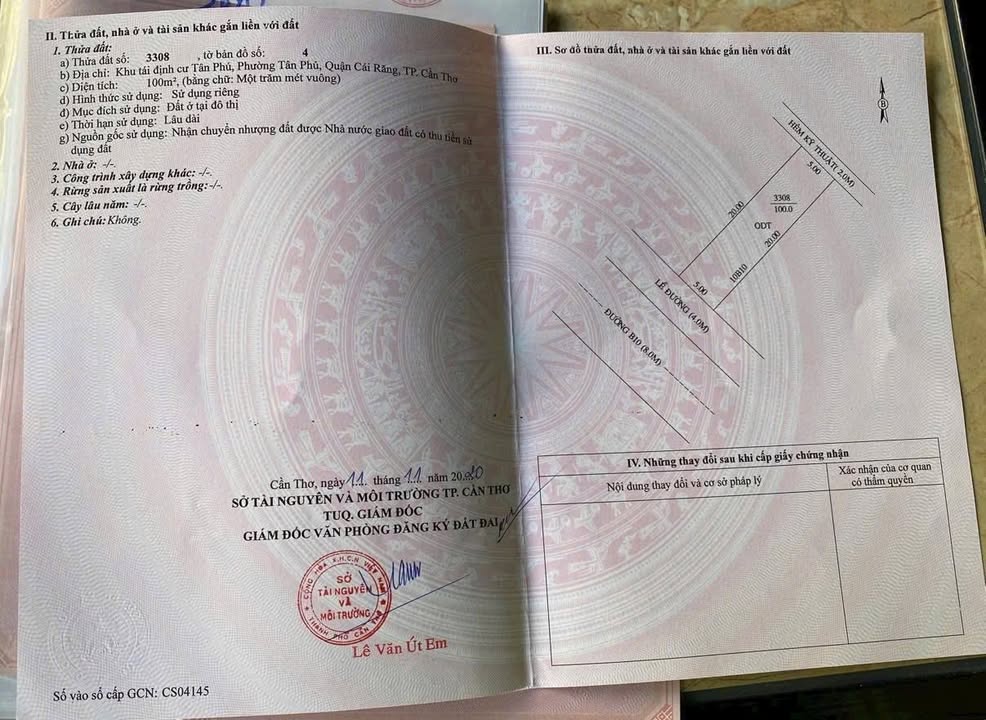 II. Thửa đất, nhà ở và tài sản khác gắn liền với đất
1. Thửa đất:
a) Thửa đất số: 3308 , tờ bản đồ số: 4
b) Địa chỉ: Khu tái định cư Tân Phú, Phường Tân Phú, Quận Cái Răng, TP. Cần Thơ
c) Diện tích: 100m², (bằng chữ: Một trăm mét vuông)
d) Hình thức sử dụng: Sử dụng riêng
đ) Mục đích sử dụng: Đất ở tại đô thị
e) Thời hạn sử dụng: Lâu dài
g) Nguồn gốc sử dụng: Nhận chuyển nhượng đất được Nhà nước giao đất có thu tiền sử
dụng đất
2. Nhà ở: -/-.
3. Công trình xây dựng khác: -/-.
4. Rừng sản xuất là rừng trồng:-/-.
5. Cây lâu năm: -/-.
6. Ghi chú:Không.
Cần Thơ, ngày 11 tháng 11 năm 2020
SỞ TÀI NGUYÊN VÀ MÔI TRƯỜNG TP. CẦN THƠ
TUQ. GIÁM ĐỐC
GIÁM ĐỐC VĂN PHÒNG ĐĂNG KÝ ĐẤT ĐAI
CỘNG HÒA X.H.C.N VIỆT NAM
SỞ
TÀI NGUYÊN
VÀ
MÔI TRƯỜNG
THÀNH PHỐ CẦN THƠ
Lê Văn Út Em
Số vào sổ cấp GCN: CS04145
III. Sơ đồ thửa đất, nhà ở và tài sản khác gắn liền với đất
B
HẺM KỸ THUẬT( 2.0M)
5.00
20.00
3308
100.0
ODT
20.00
10B10
5.00
LỀ ĐƯỜNG (4.0M)
ĐƯỜNG B10 (8.0M)
IV. Những thay đổi sau khi cấp giấy chứng nhận
Nội dung thay đổi và cơ sở pháp lý
Xác nhận của cơ quan
có thẩm quyền